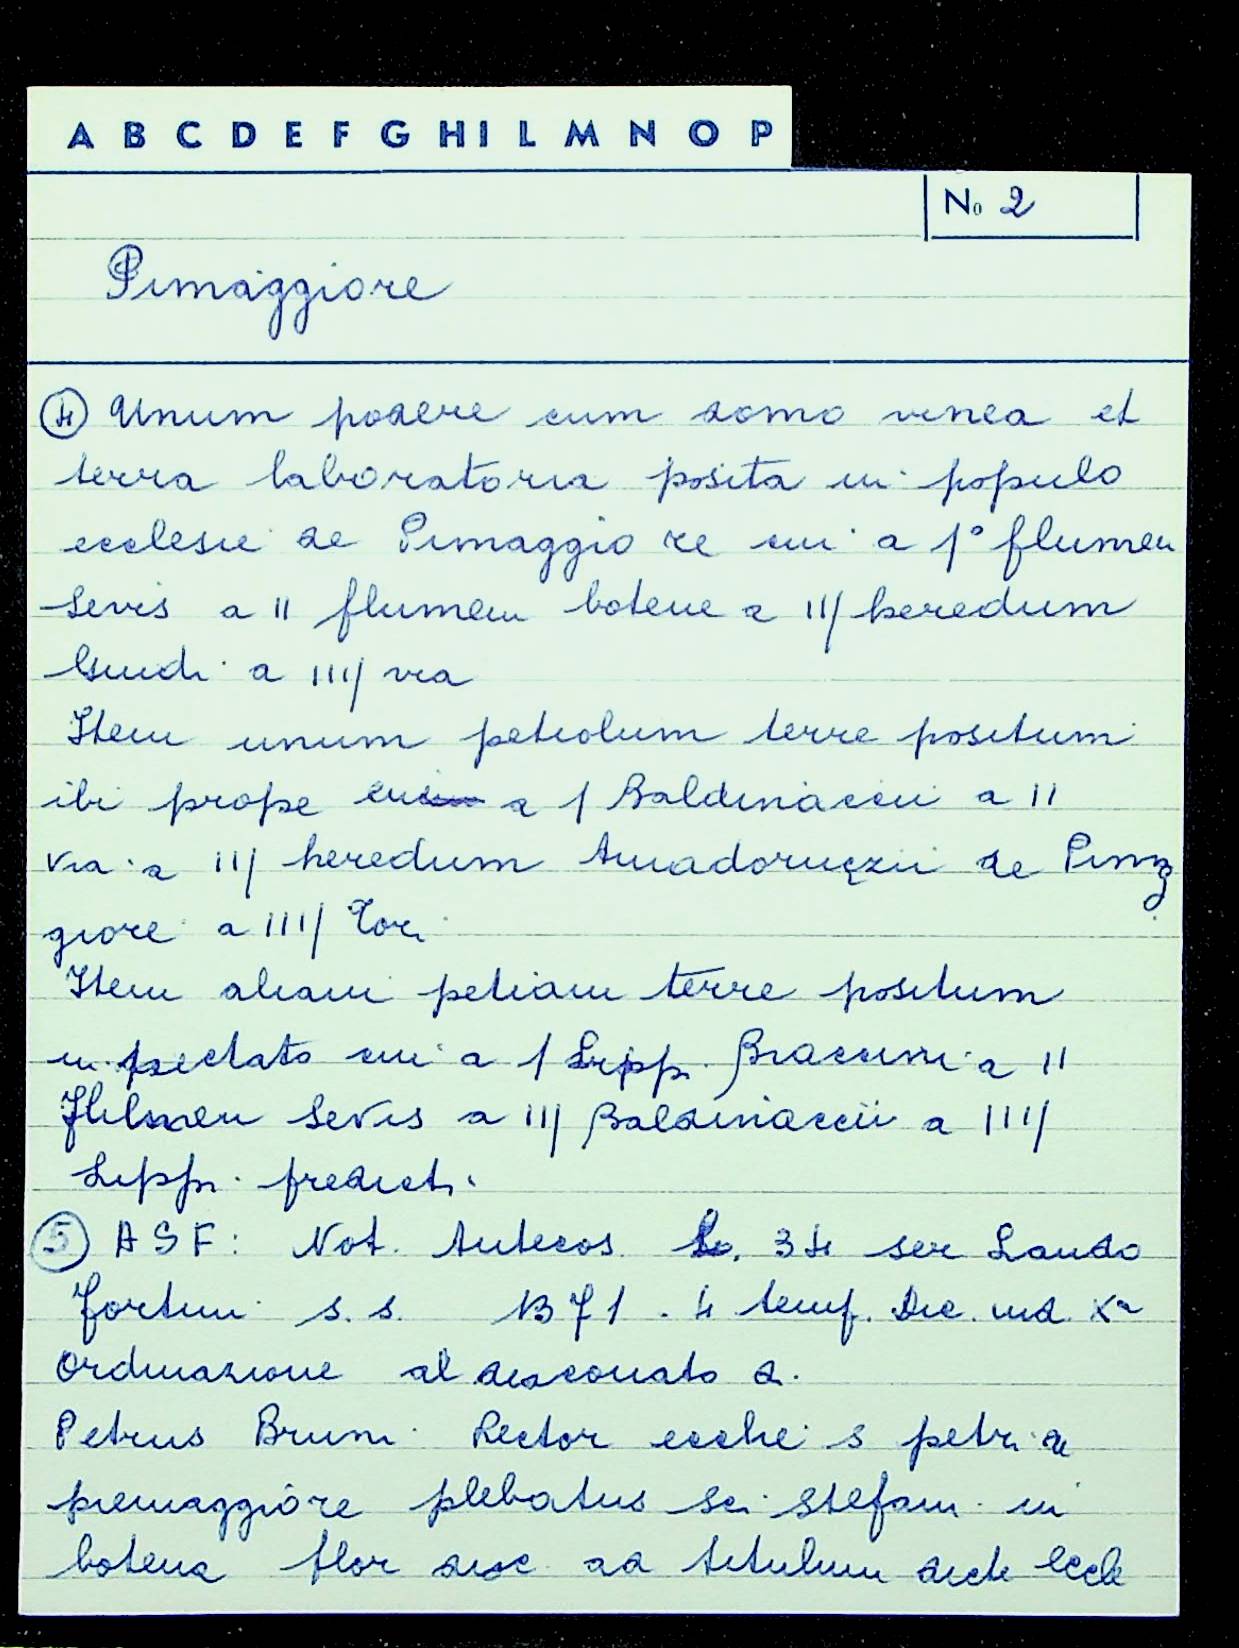 A B C D E F G H I L M N O P
No 2
Pimaggiore
④ Unum podere cum domo vinea et
terra laboratoria posita in populo
ecclesie de Pimaggio re cui a 1° flumen
Sevis a II flumen botene a III heredum
Guidi a IIII via
Item unum petiolum terre positum
ibi prope cui a 1 Baldinaccii a II
via a III heredum Amadoruczii de Pimag
giore a IIII Lori
Item aliam petiam terre positum
in pectato cui a 1 Lippi Braccini a II
flumen Sevis a III Baldinaccii a IIII
Lippi predicti.
⑤ ASF: Not. Antecos. 34 ser Lando
Fortini s.s. B 71. 4 temp. Dic. ind. Xa
Ordinazione al diaconato d.
Petrus Bruni Rector ecclie s petri de
piemaggiore plebatus sci stefani in
botena flor dioc ad titulum dicte Eccle